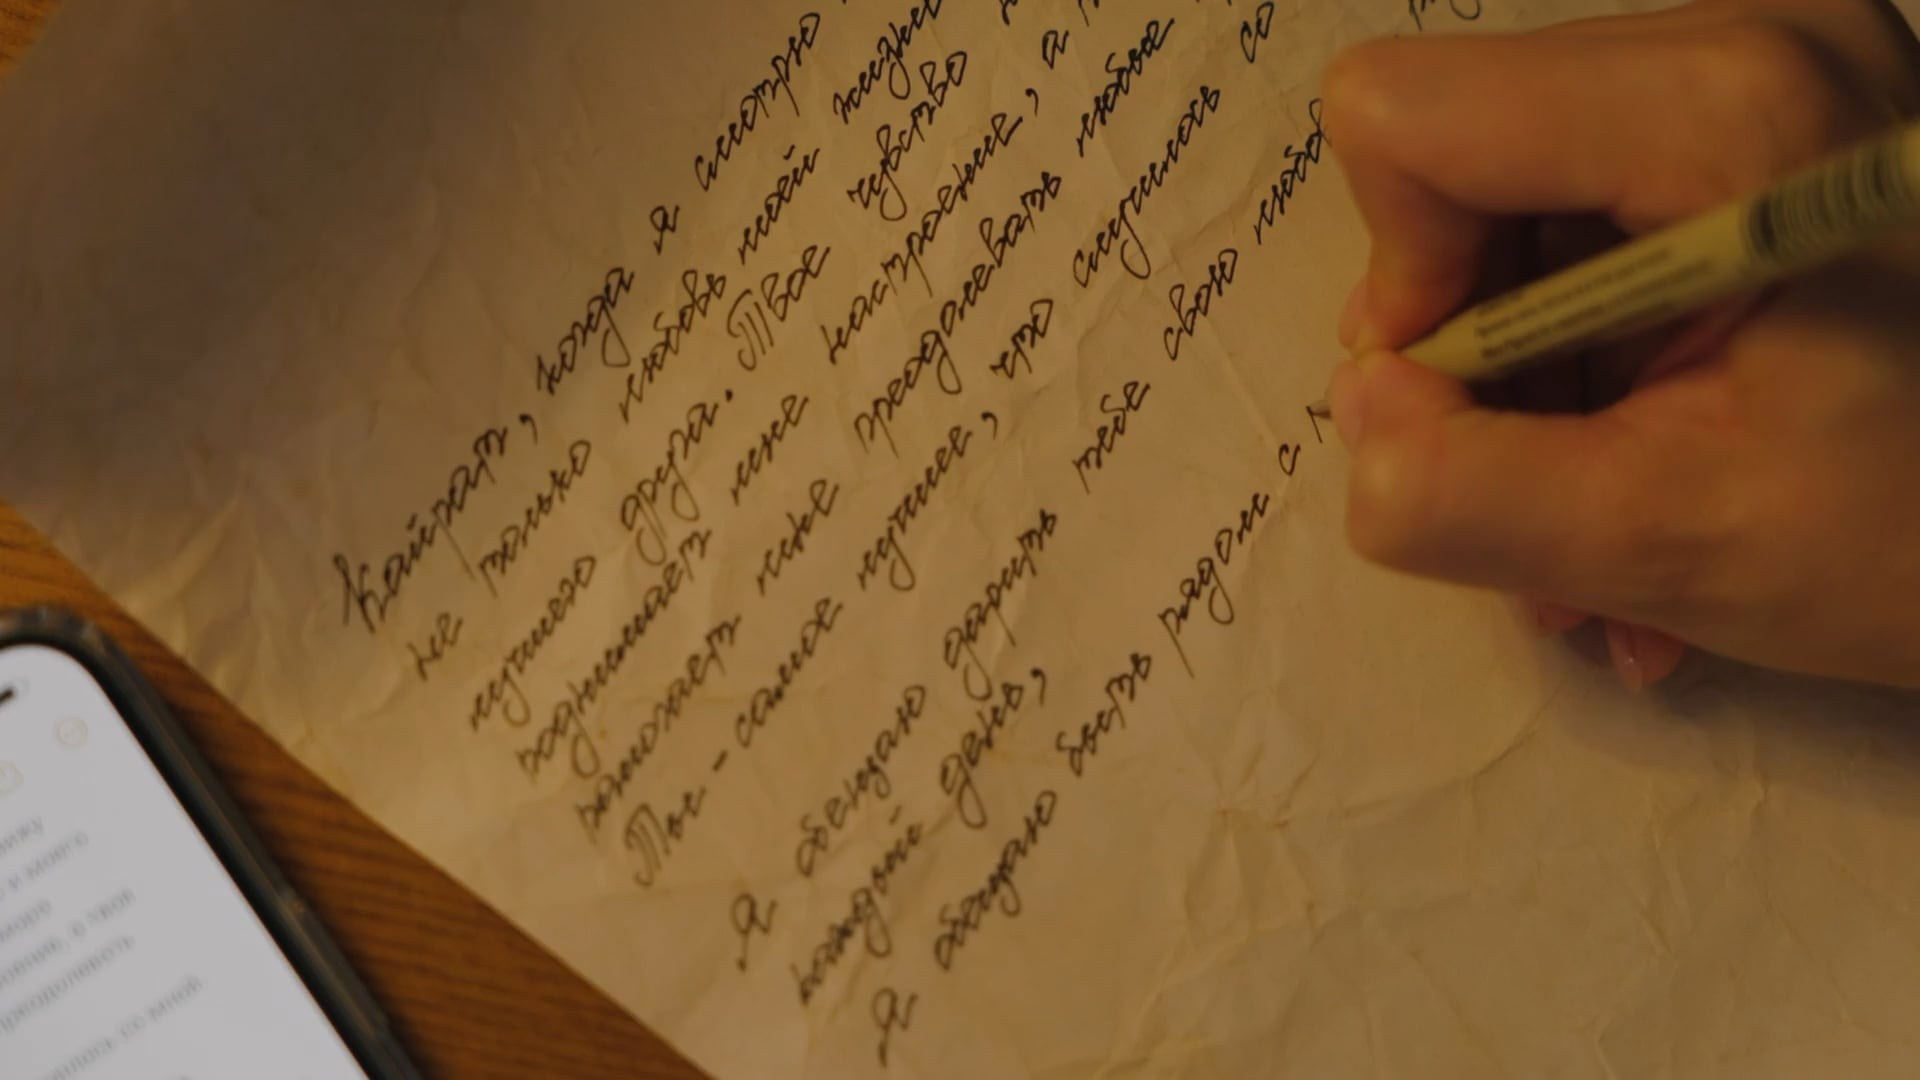 Кайрат, когда я смотрю
не только любовь моей жизни
лучшего друга. Твое чувство
поднимает мне настроение, а
помогает мне преодолевать любые
Ты - самое лучшее, что случилось со
Я обещаю дарить тебе свою любов
каждый день,
Я обещаю быть рядом с
вижу
и моего
юмора
роение, а твоя
преодолевать
училось со мной